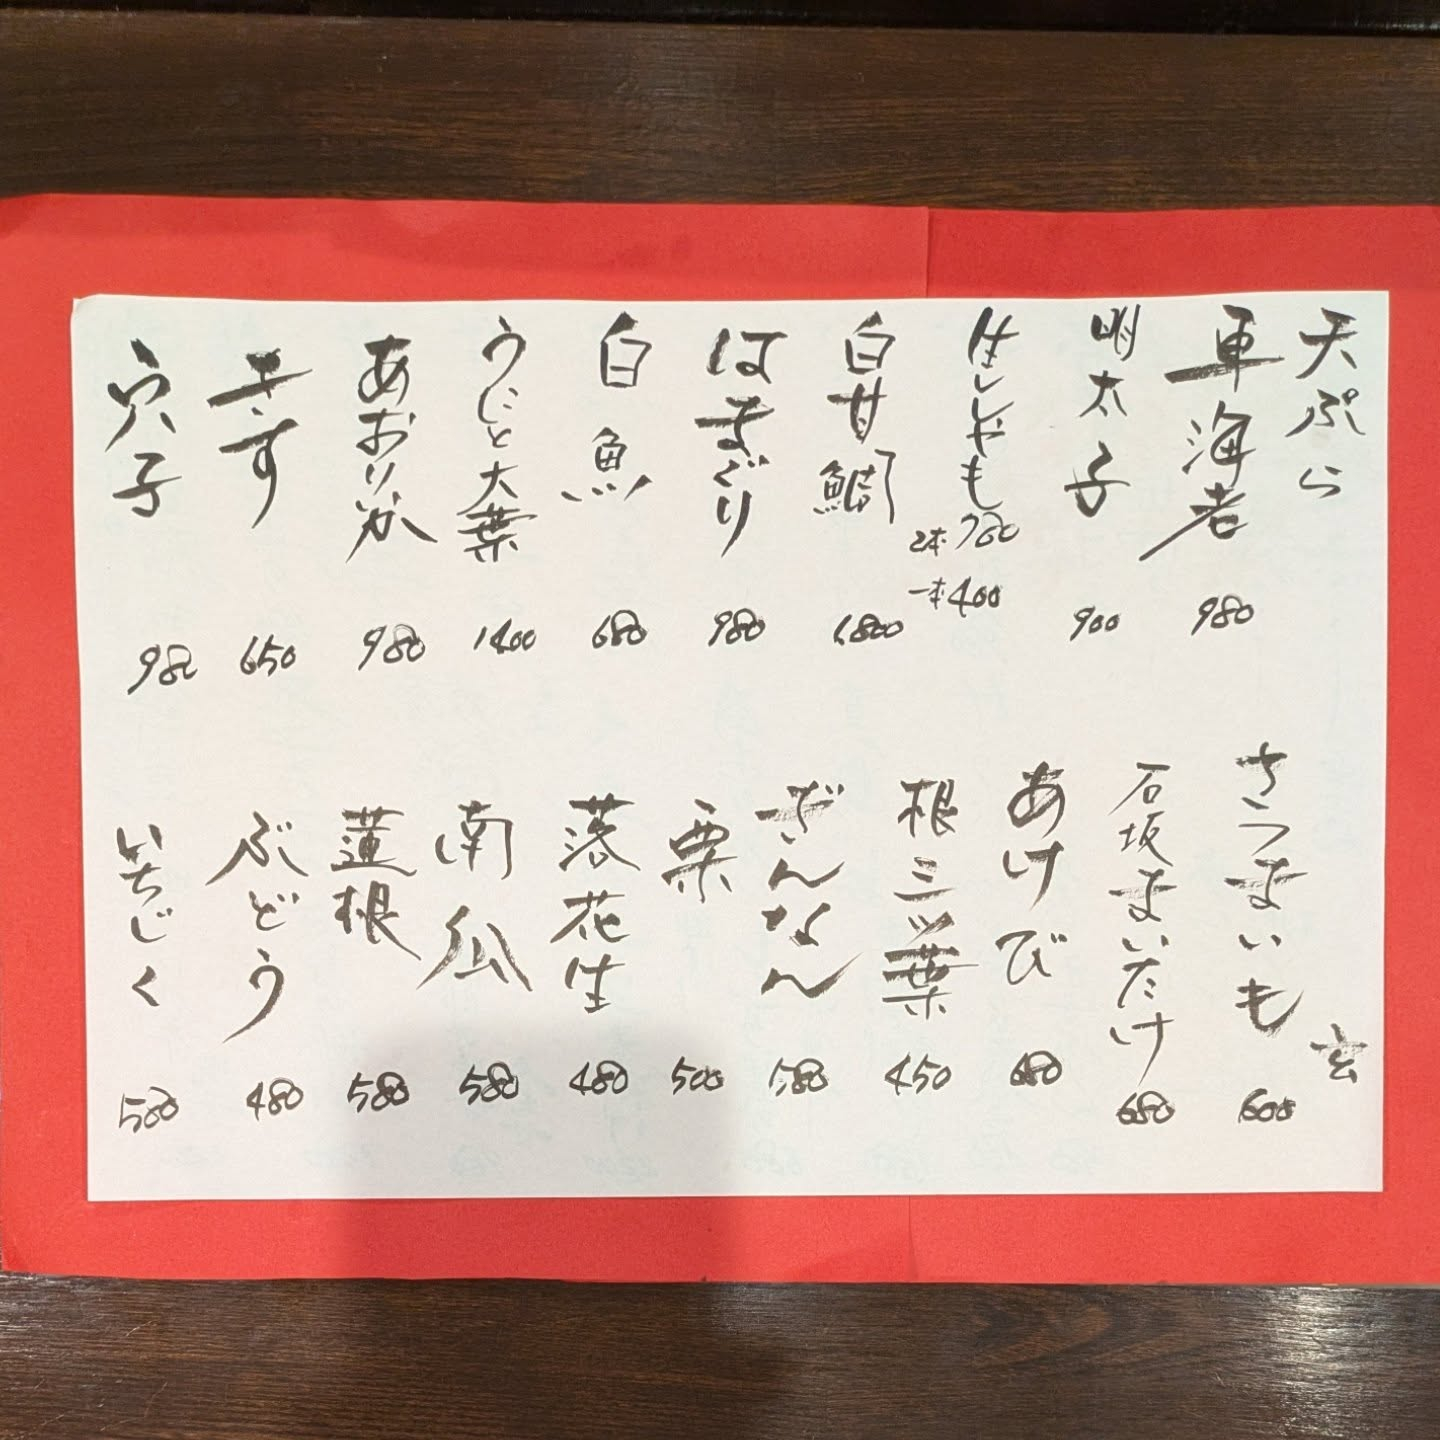 天ぷら
車海老 980
明太子 900
生ししゃも 2本 780
一本 400
白甘鯛 1,800
はまぐり 980
白魚 680
うにと大葉 1400
あおりいか 980
きす 650
穴子 980
さつまいも 600
石坂まいたけ 680
あけび 680
根三ッ葉 450
ぎんなん 580
栗 500
落花生 480
南瓜 580
蓮根 580
ぶどう 480
いちじく 500
玄